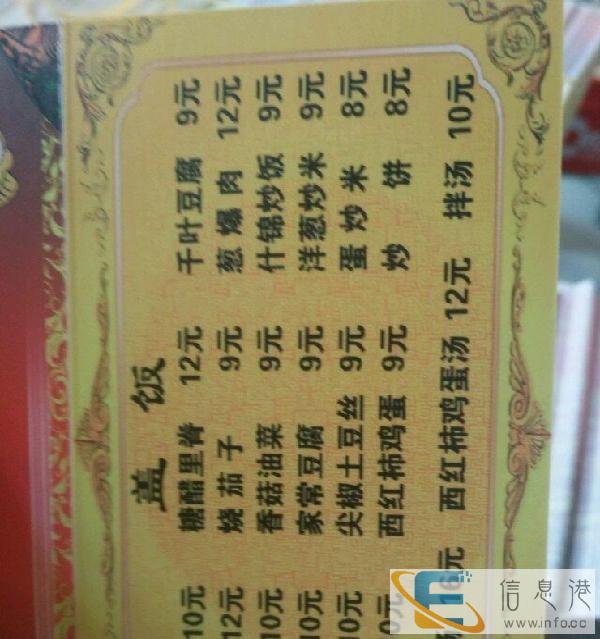 盖饭
10元 糖醋里脊 12元 千叶豆腐 9元
12元 烧茄子 9元 葱爆肉 12元
10元 香菇油菜 9元 什锦炒饭 9元
10元 家常豆腐 9元 洋葱炒米 9元
10元 尖椒土豆丝 9元 蛋炒米 8元
0元 西红柿鸡蛋 9元 炒饼 8元
16元 西红柿鸡蛋汤 12元 拌汤 10元
信息港
www.info.cc